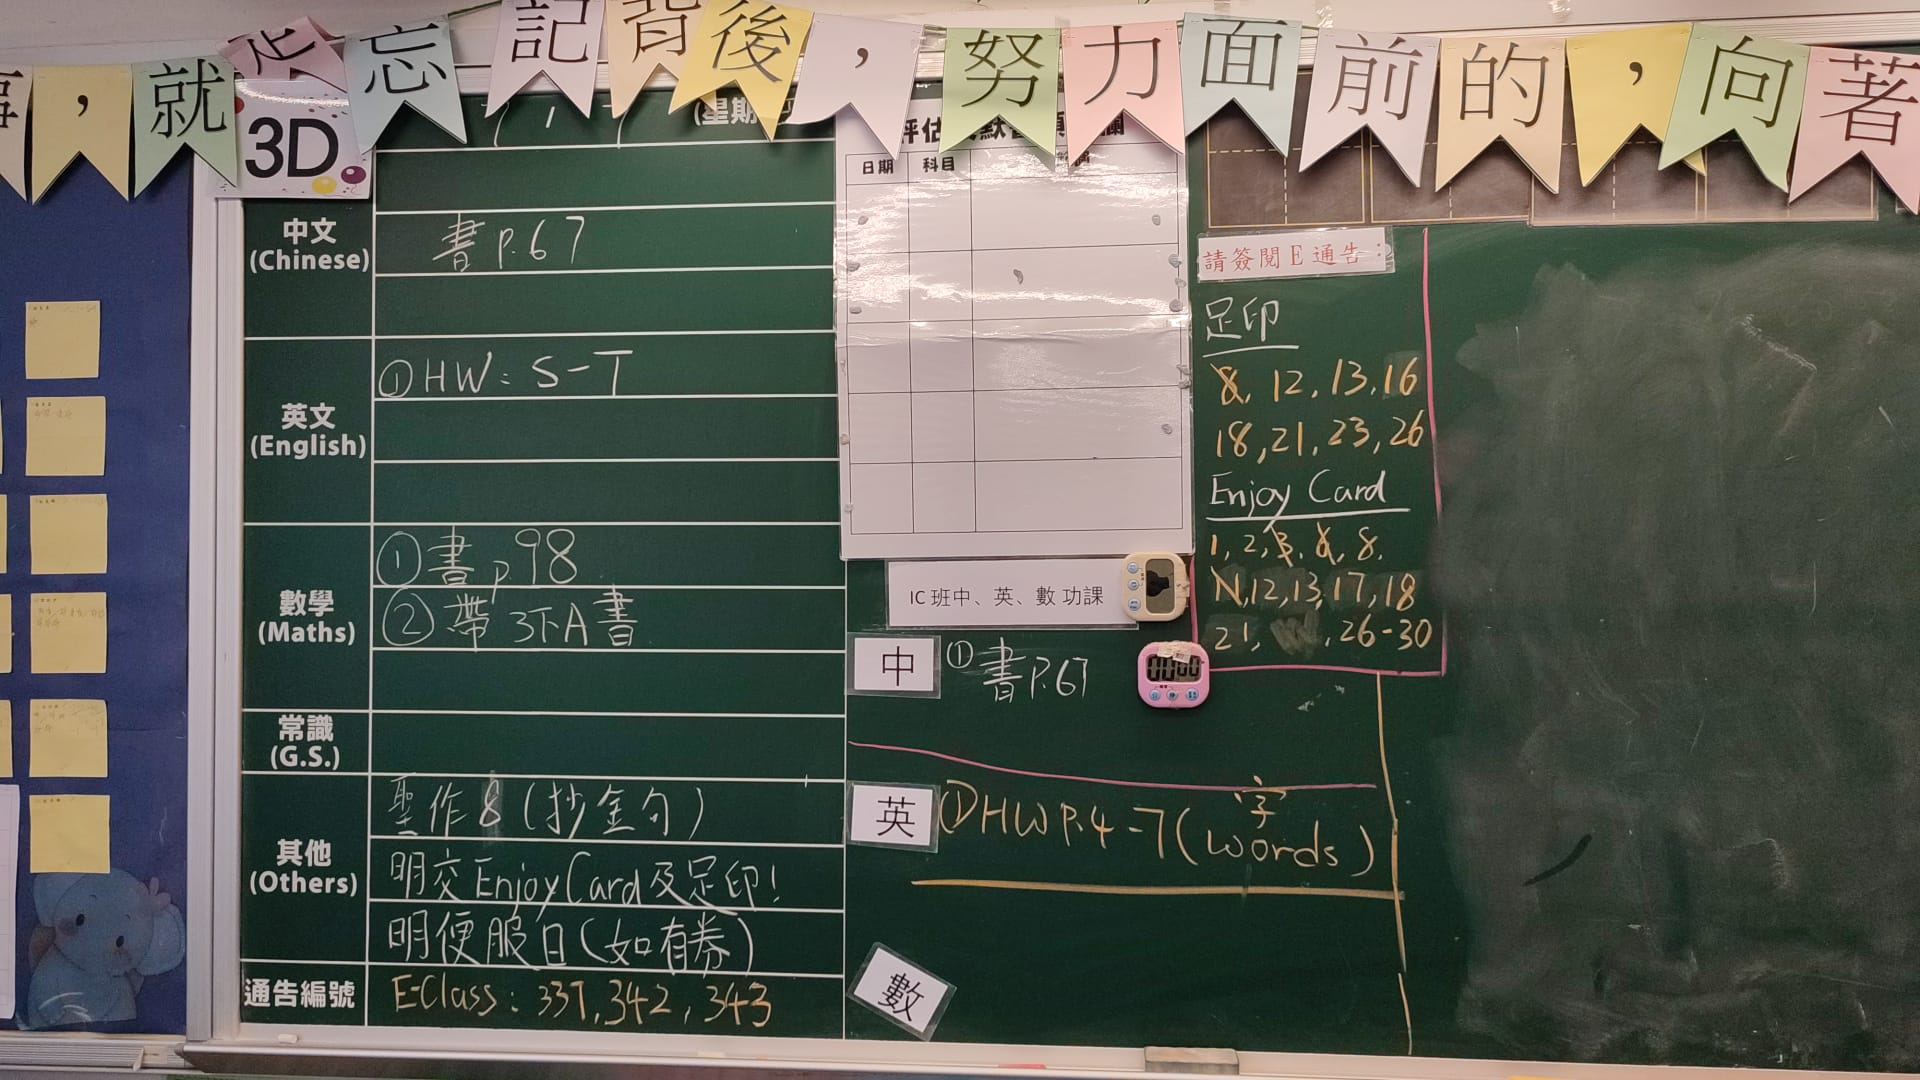 事，就是忘記背後，努力面前的，向著
3D
中文
(Chinese)
書 P.67
英文
(English)
① HW: S-T
數學
(Maths)
① 書 p.98
② 帶 3下A書
常識
(G.S.)
其他
(Others)
聖作 8 (抄金句)
明交 Enjoy Card 及足印!
明便服日(如有券)
通告編號
E-Class: 337, 342, 343
日期 科目
IC 班中、英、數 功課
中
① 書 P.67
英
① HW P.4-7 (字 words)
數
請簽閱 E 通告：
足印
8, 12, 13, 16
18, 21, 23, 26
Enjoy Card
1, 2, 8,
12, 13, 17, 18
21, 26-30
00:00